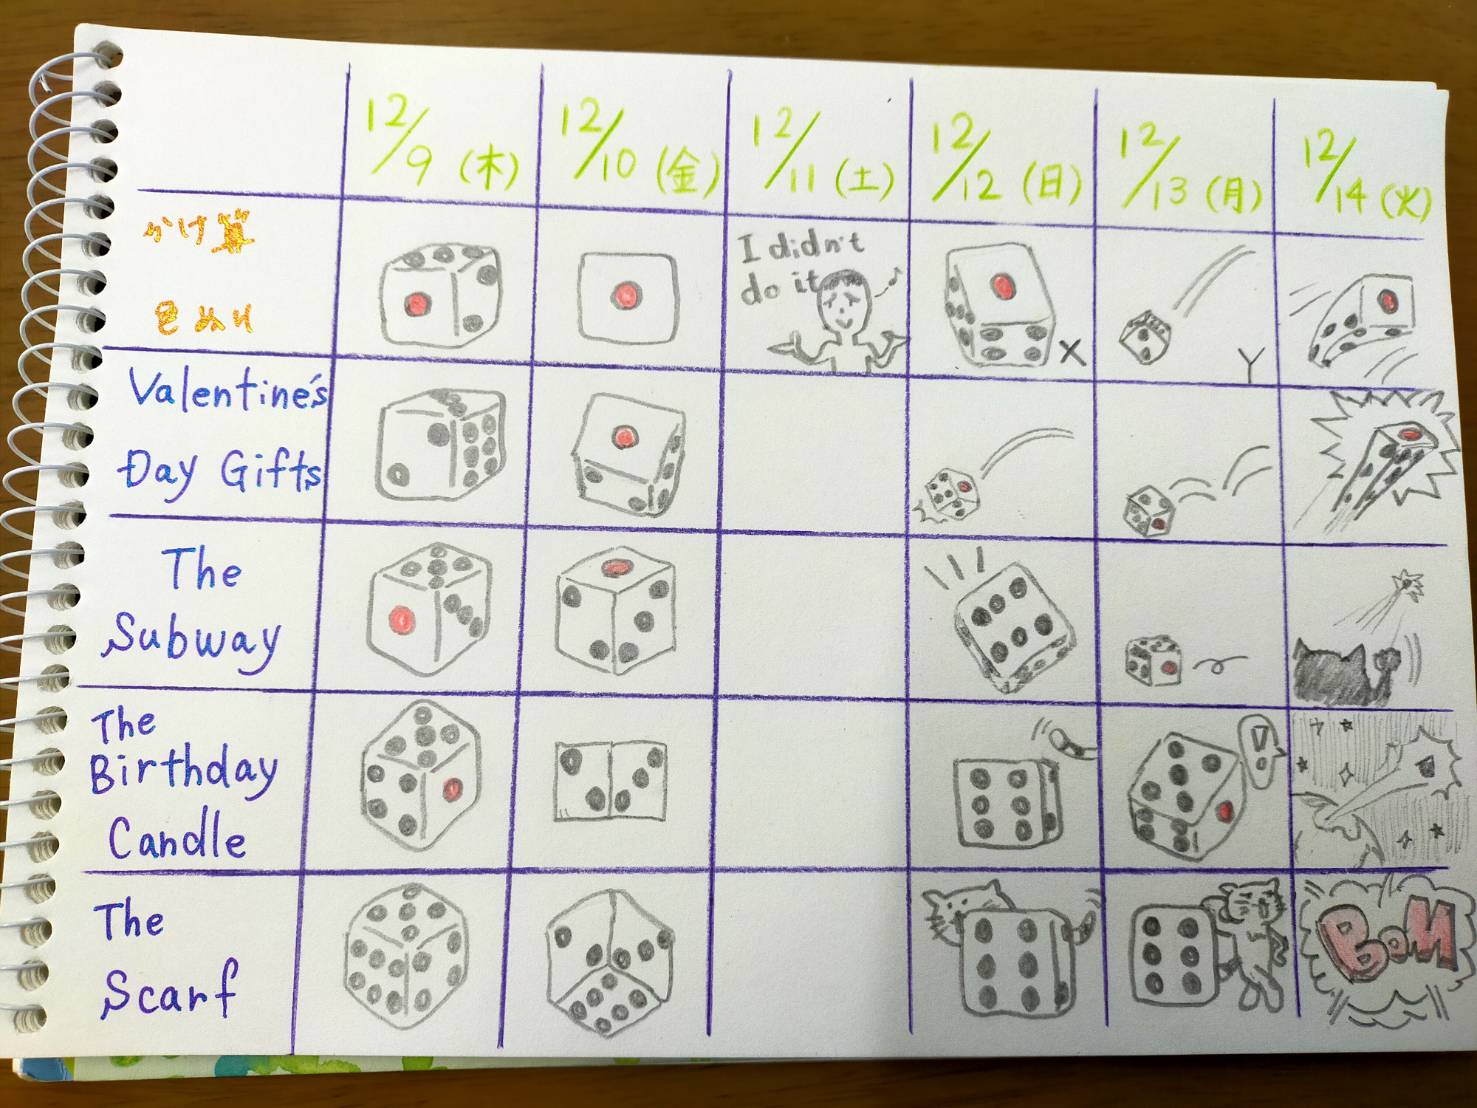 12/9 (木)
12/10 (金)
12/11 (土)
12/12 (日)
12/13 (月)
12/14 (火)
かけ算
きぬり
I didn't
do it
X
Y
Valentine's
Day Gifts
The
Subway
The
Birthday
Candle
!
The
Scarf
BOM